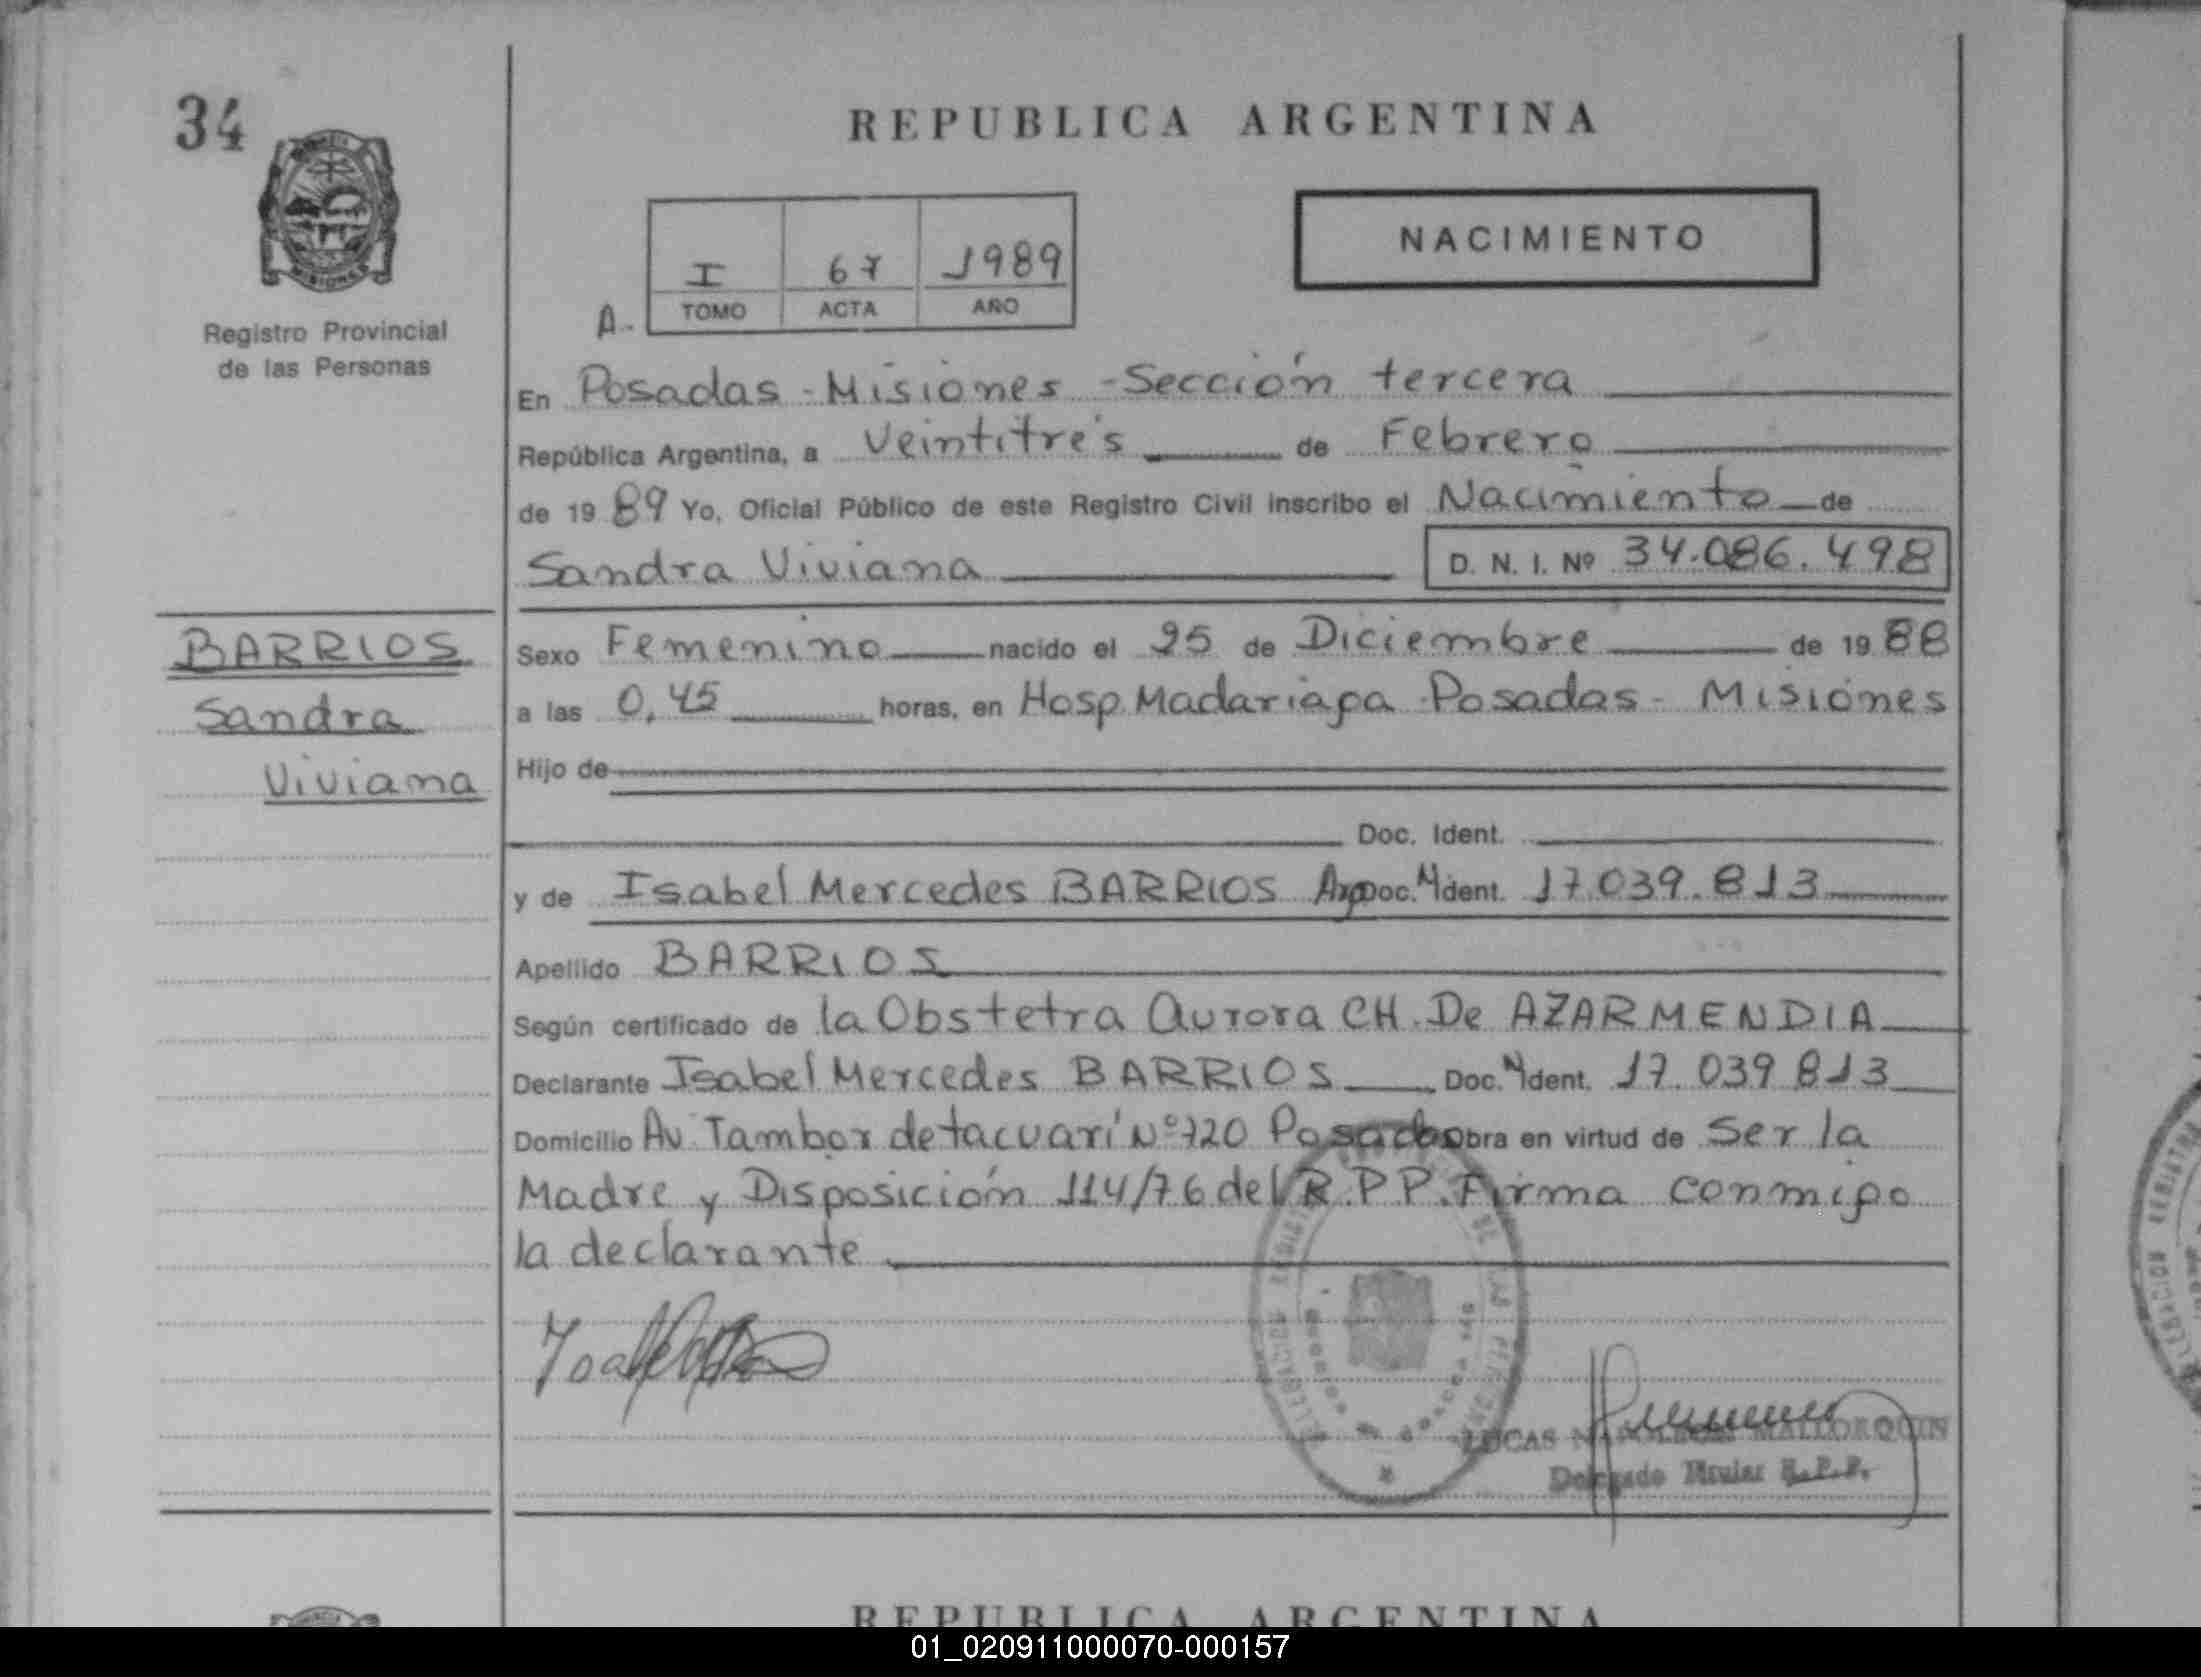 34
MISIONES
Registro Provincial
de las Personas
REPUBLICA ARGENTINA
NACIMIENTO
I 67 1989
A. TOMO ACTA AÑO
En Posadas - Misiones - Sección tercera
República Argentina, a Veintitrés de Febrero
de 19 89 Yo, Oficial Público de este Registro Civil inscribo el Nacimiento de
Sandra Viviana D. N. I. Nº 34.086.498
BARRIOS
Sandra
Viviana
Sexo Femenino nacido el 25 de Diciembre de 19 88
a las 0,45 horas, en Hosp. Madariaga Posadas - Misiones
Hijo de
Doc. Ident.
y de Isabel Mercedes BARRIOS Arg Doc. N Ident. 17.039.813
Apellido BARRIOS
Según certificado de la Obstetra Aurora CH. De AZARMENDIA
Declarante Isabel Mercedes BARRIOS Doc. N Ident. 17.039.813
Domicilio Av. Tambor de tacuarí Nº 720 Posadas obra en virtud de Ser la
Madre y Disposición 114/76 del R.P.P. Firma conmigo
la declarante
LUCAS NAPOLEON MALLORQUIN
Delegado Titular R.P.P.
REPUBLICA ARGENTINA
01_020911000070-000157